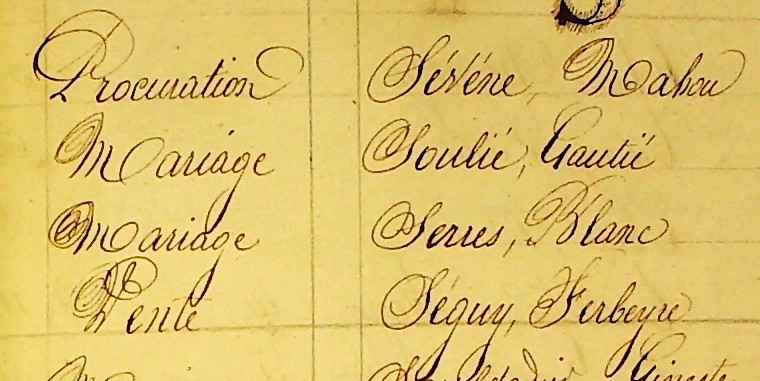 Procuration Sévéne, Mahou
Mariage Soulié, Gautié
Mariage Serres, Blanc
Vente Séguy, Ferbeyre